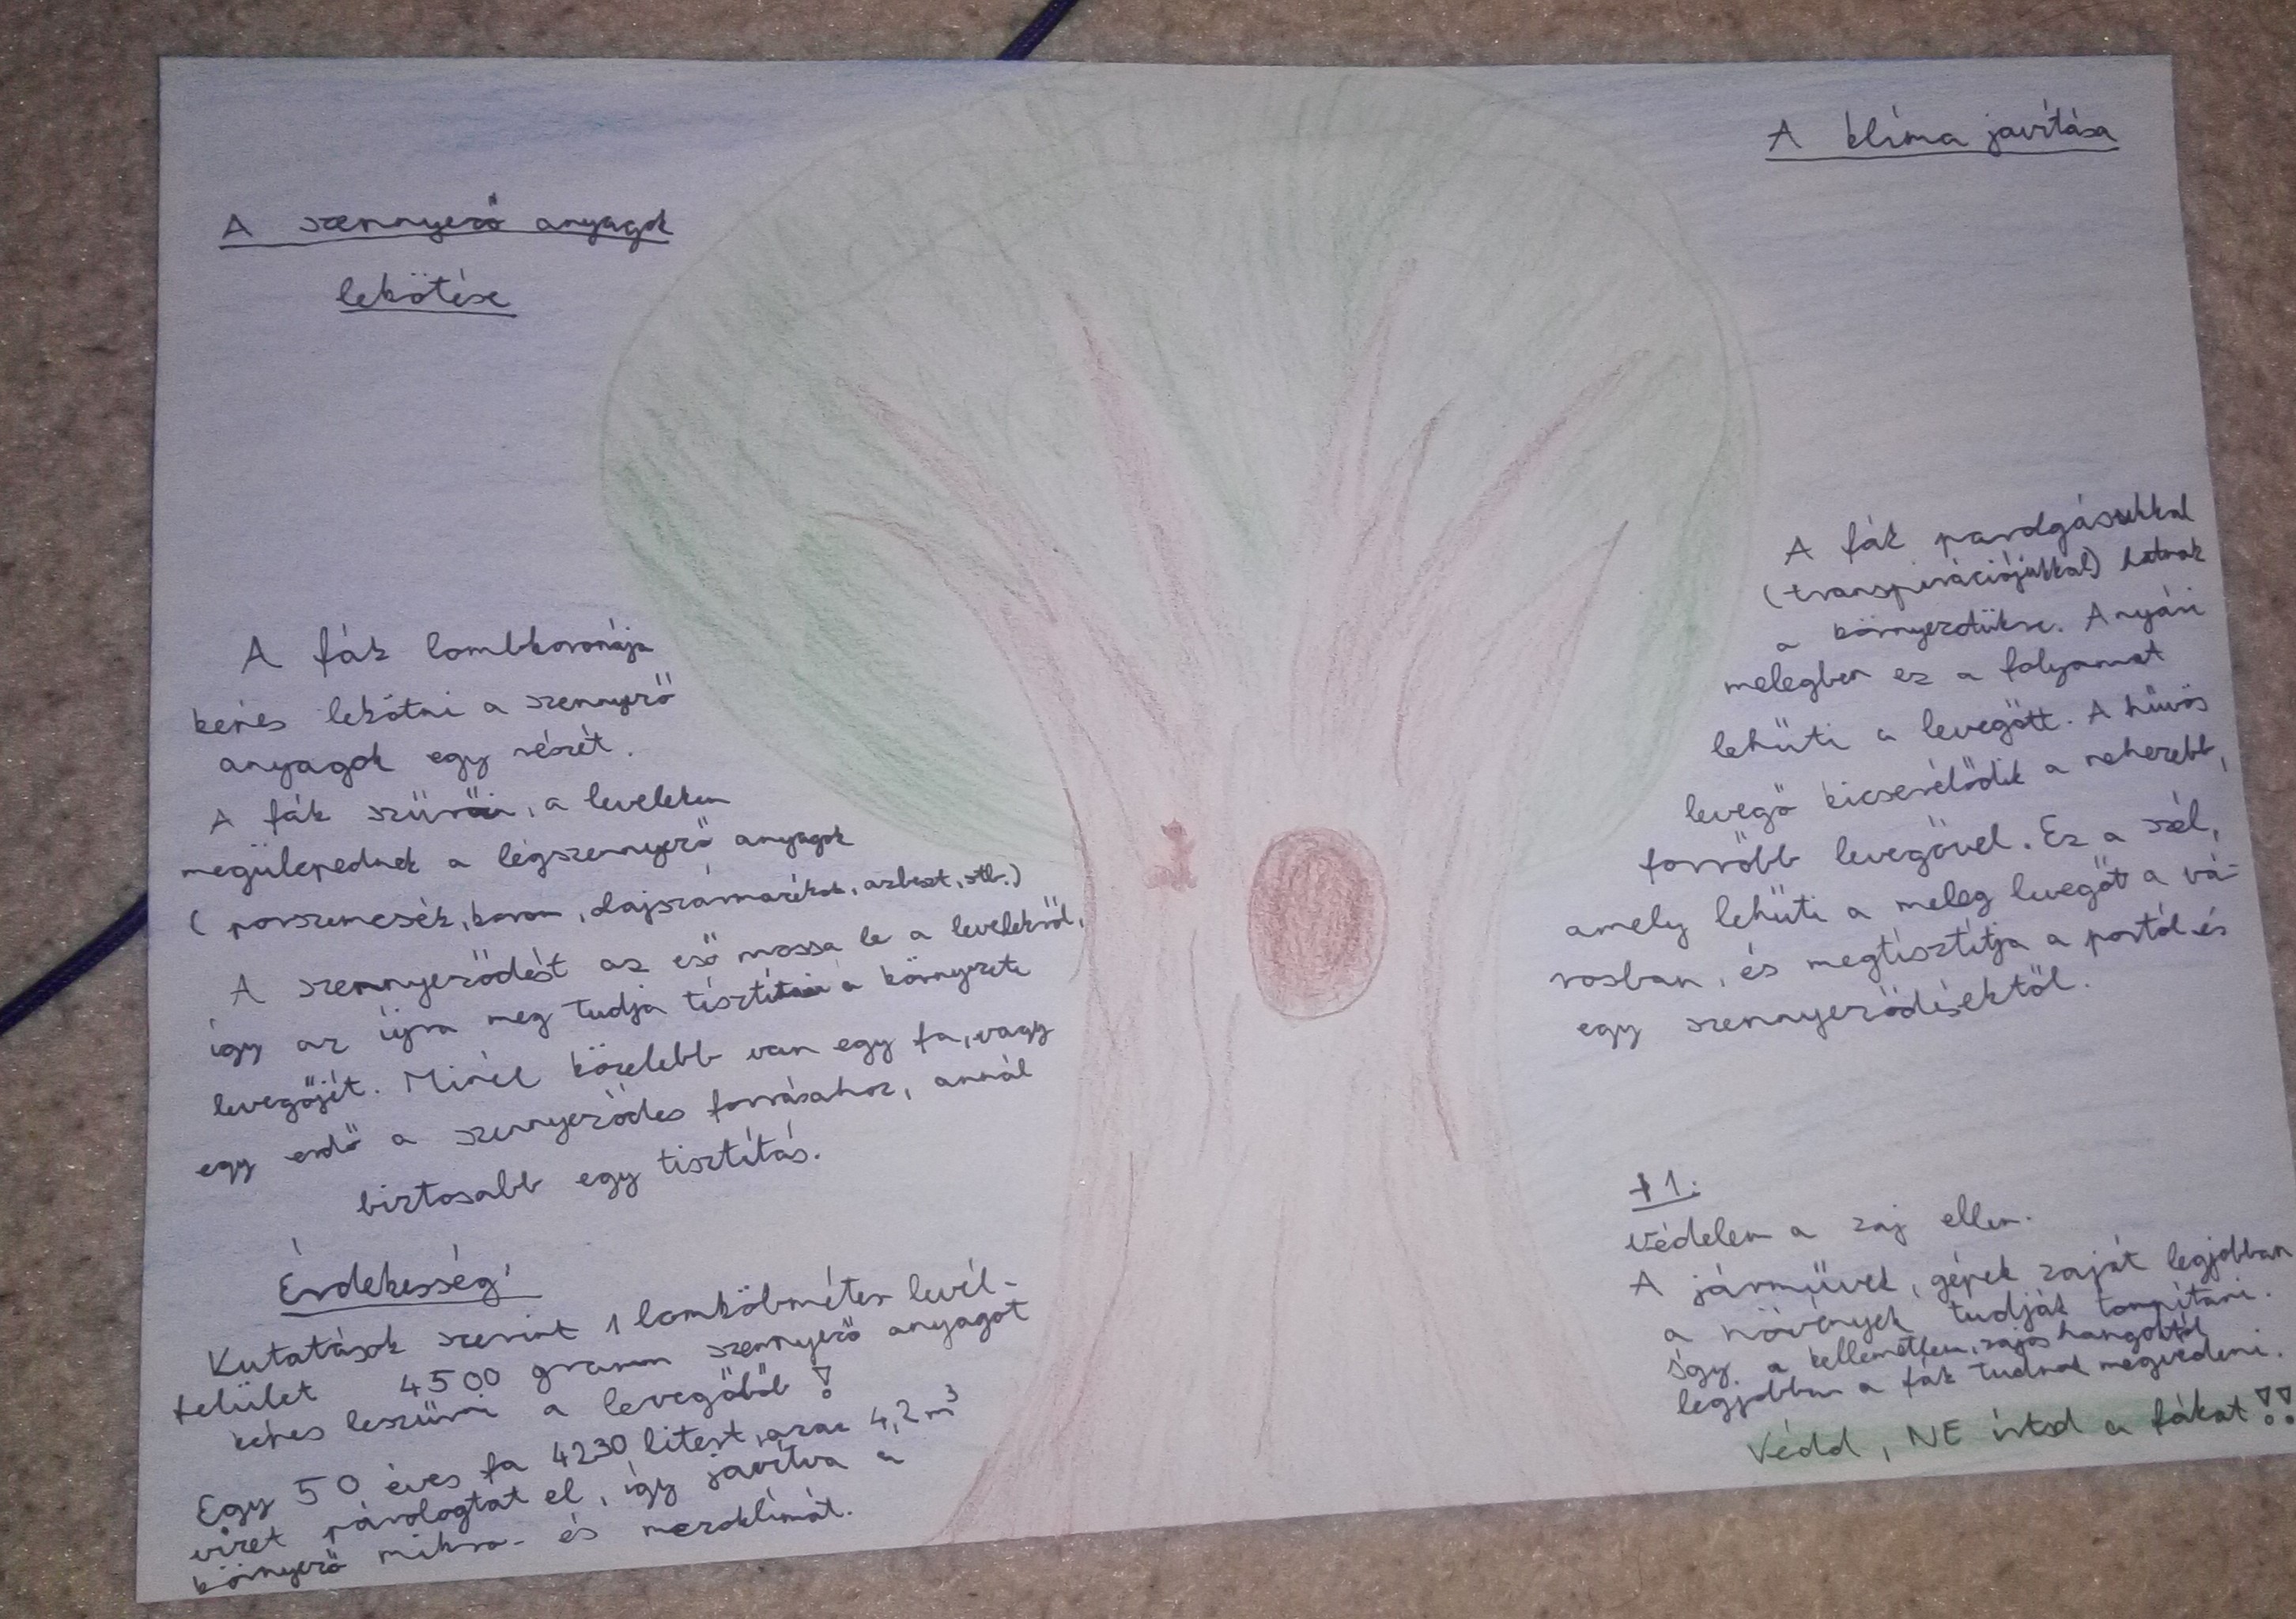 A szennyező anyagok
lekötése
A fák lombkoronája
képes lekötni a szennyező
anyagok egy részét.
A fák szűrői, a leveleken
megülepednek a légszennyező anyagok
(porszemcsék, korom, olajszármazékok, azbeszt, stb.)
A szennyeződést az eső mossa le a levelekről,
így az újra meg tudja tisztítani a környezete
levegőjét. Minél közelebb van egy fa, vagy
egy erdő a szennyeződés forrásához, annál
biztosabb egy tisztítás.
Érdekesség:
Kutatások szerint 1 lombköbméter levél-
felület 4500 gramm szennyező anyagot
képes leszűrni a levegőből!
Egy 50 éves fa 4230 litert, azaz 4,2 m³
vizet párologtat el, így javítva a
környező mikro- és mezoklímát.
A klíma javítása
A fák párolgásukkal
(transpirációjukkal) hatnak
a környezetükre. A nyári
melegben ez a folyamat
lehűti a levegőtt. A hűvös
levegő kicserélődik a nehezebb,
forróbb levegővel. Ez a szél,
amely lehűti a meleg levegőt a vá-
rosban, és megtisztítja a portól és
egy szennyeződésektől.
+1:
Védelem a zaj ellen.
A járművek, gépek zaját legjobban
a növények tudják tompítani.
Így a kellemetlen, zajos hangoktól
legjobban a fák tudnak megvédeni.
Védd, NE írtsd a fákat!!